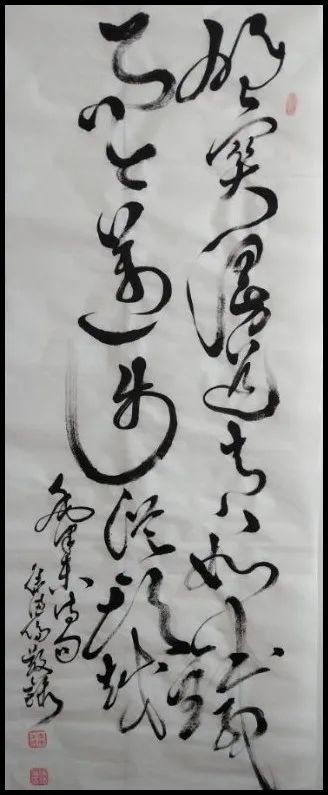 雄關漫道真如鐵
而今邁步從頭越
毛澤東詩句